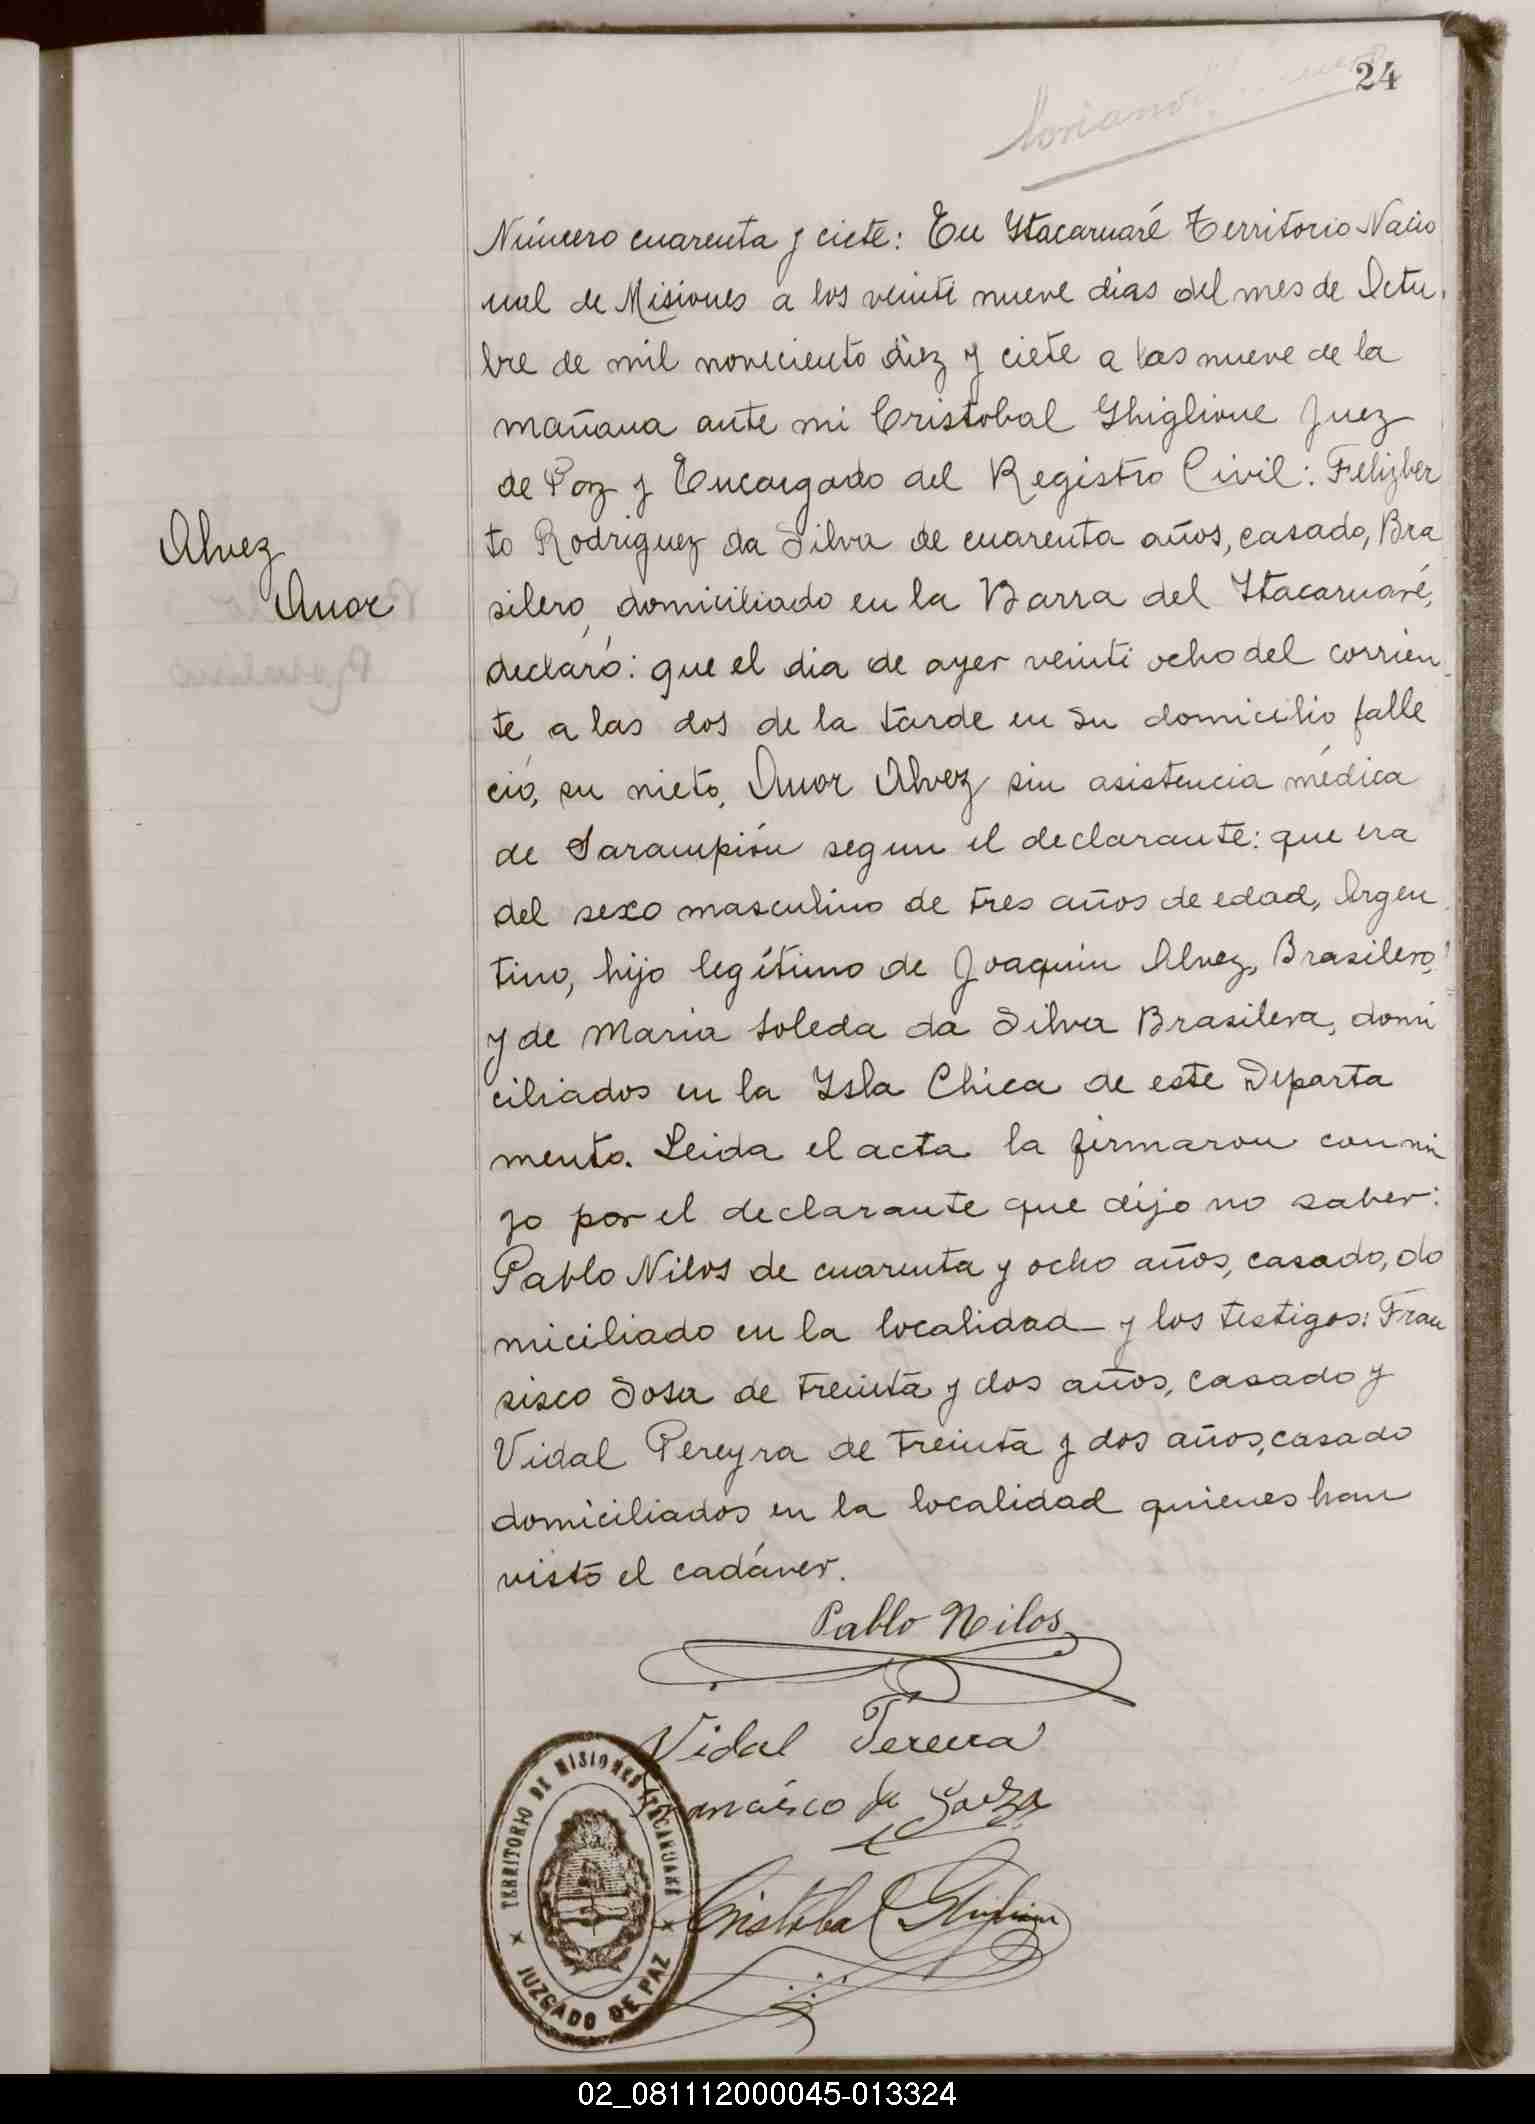 24
Soriano
Número cuarenta y ciete: En Itacaruaré Territorio Nacio
nal de Misiones a los veinti nueve dias del mes de Octu.
bre de mil noveciento diez y ciete a las nueve de la
mañana ante mi Cristobal Ghiglione Juez
de Paz y Encargado del Registro Civil: Felizber
to Rodriguez da Silva de cuarenta años, casado, Bra
silero, domiciliado en la Barra del Itacaruaré,
declaró: que el dia de ayer veinti ocho del corrien
te a las dos de la tarde en su domicilio falle
ció, su nieto, Anor Alvez sin asistencia médica
de Sarampión segun el declarante: que era
del sexo masculino de tres años de edad, Argen
tino, hijo legítimo de Joaquin Alvez, Brasilero,
y de Maria Soleda da Silva Brasilera, domi
ciliados en la Isla Chica de este Departa
mento. Leida el acta la firmaron conmi
go por el declarante que dijo no saber:
Pablo Nilos de cuarenta y ocho años, casado, do
miciliado en la localidad y los testigos: Fran
sisco Sosa de treinta y dos años, casado y
Vidal Pereyra de treinta y dos años, casado
domiciliados en la localidad quienes han
visto el cadáver.
Alvez
Anor
Pablo Nilos
Vidal Pereira
Francisco da Souza
Cristobal Ghiglione
TERRITORIO DE MISIONES ITACARUARÉ
JUZGADO DE PAZ
02_081112000045-013324